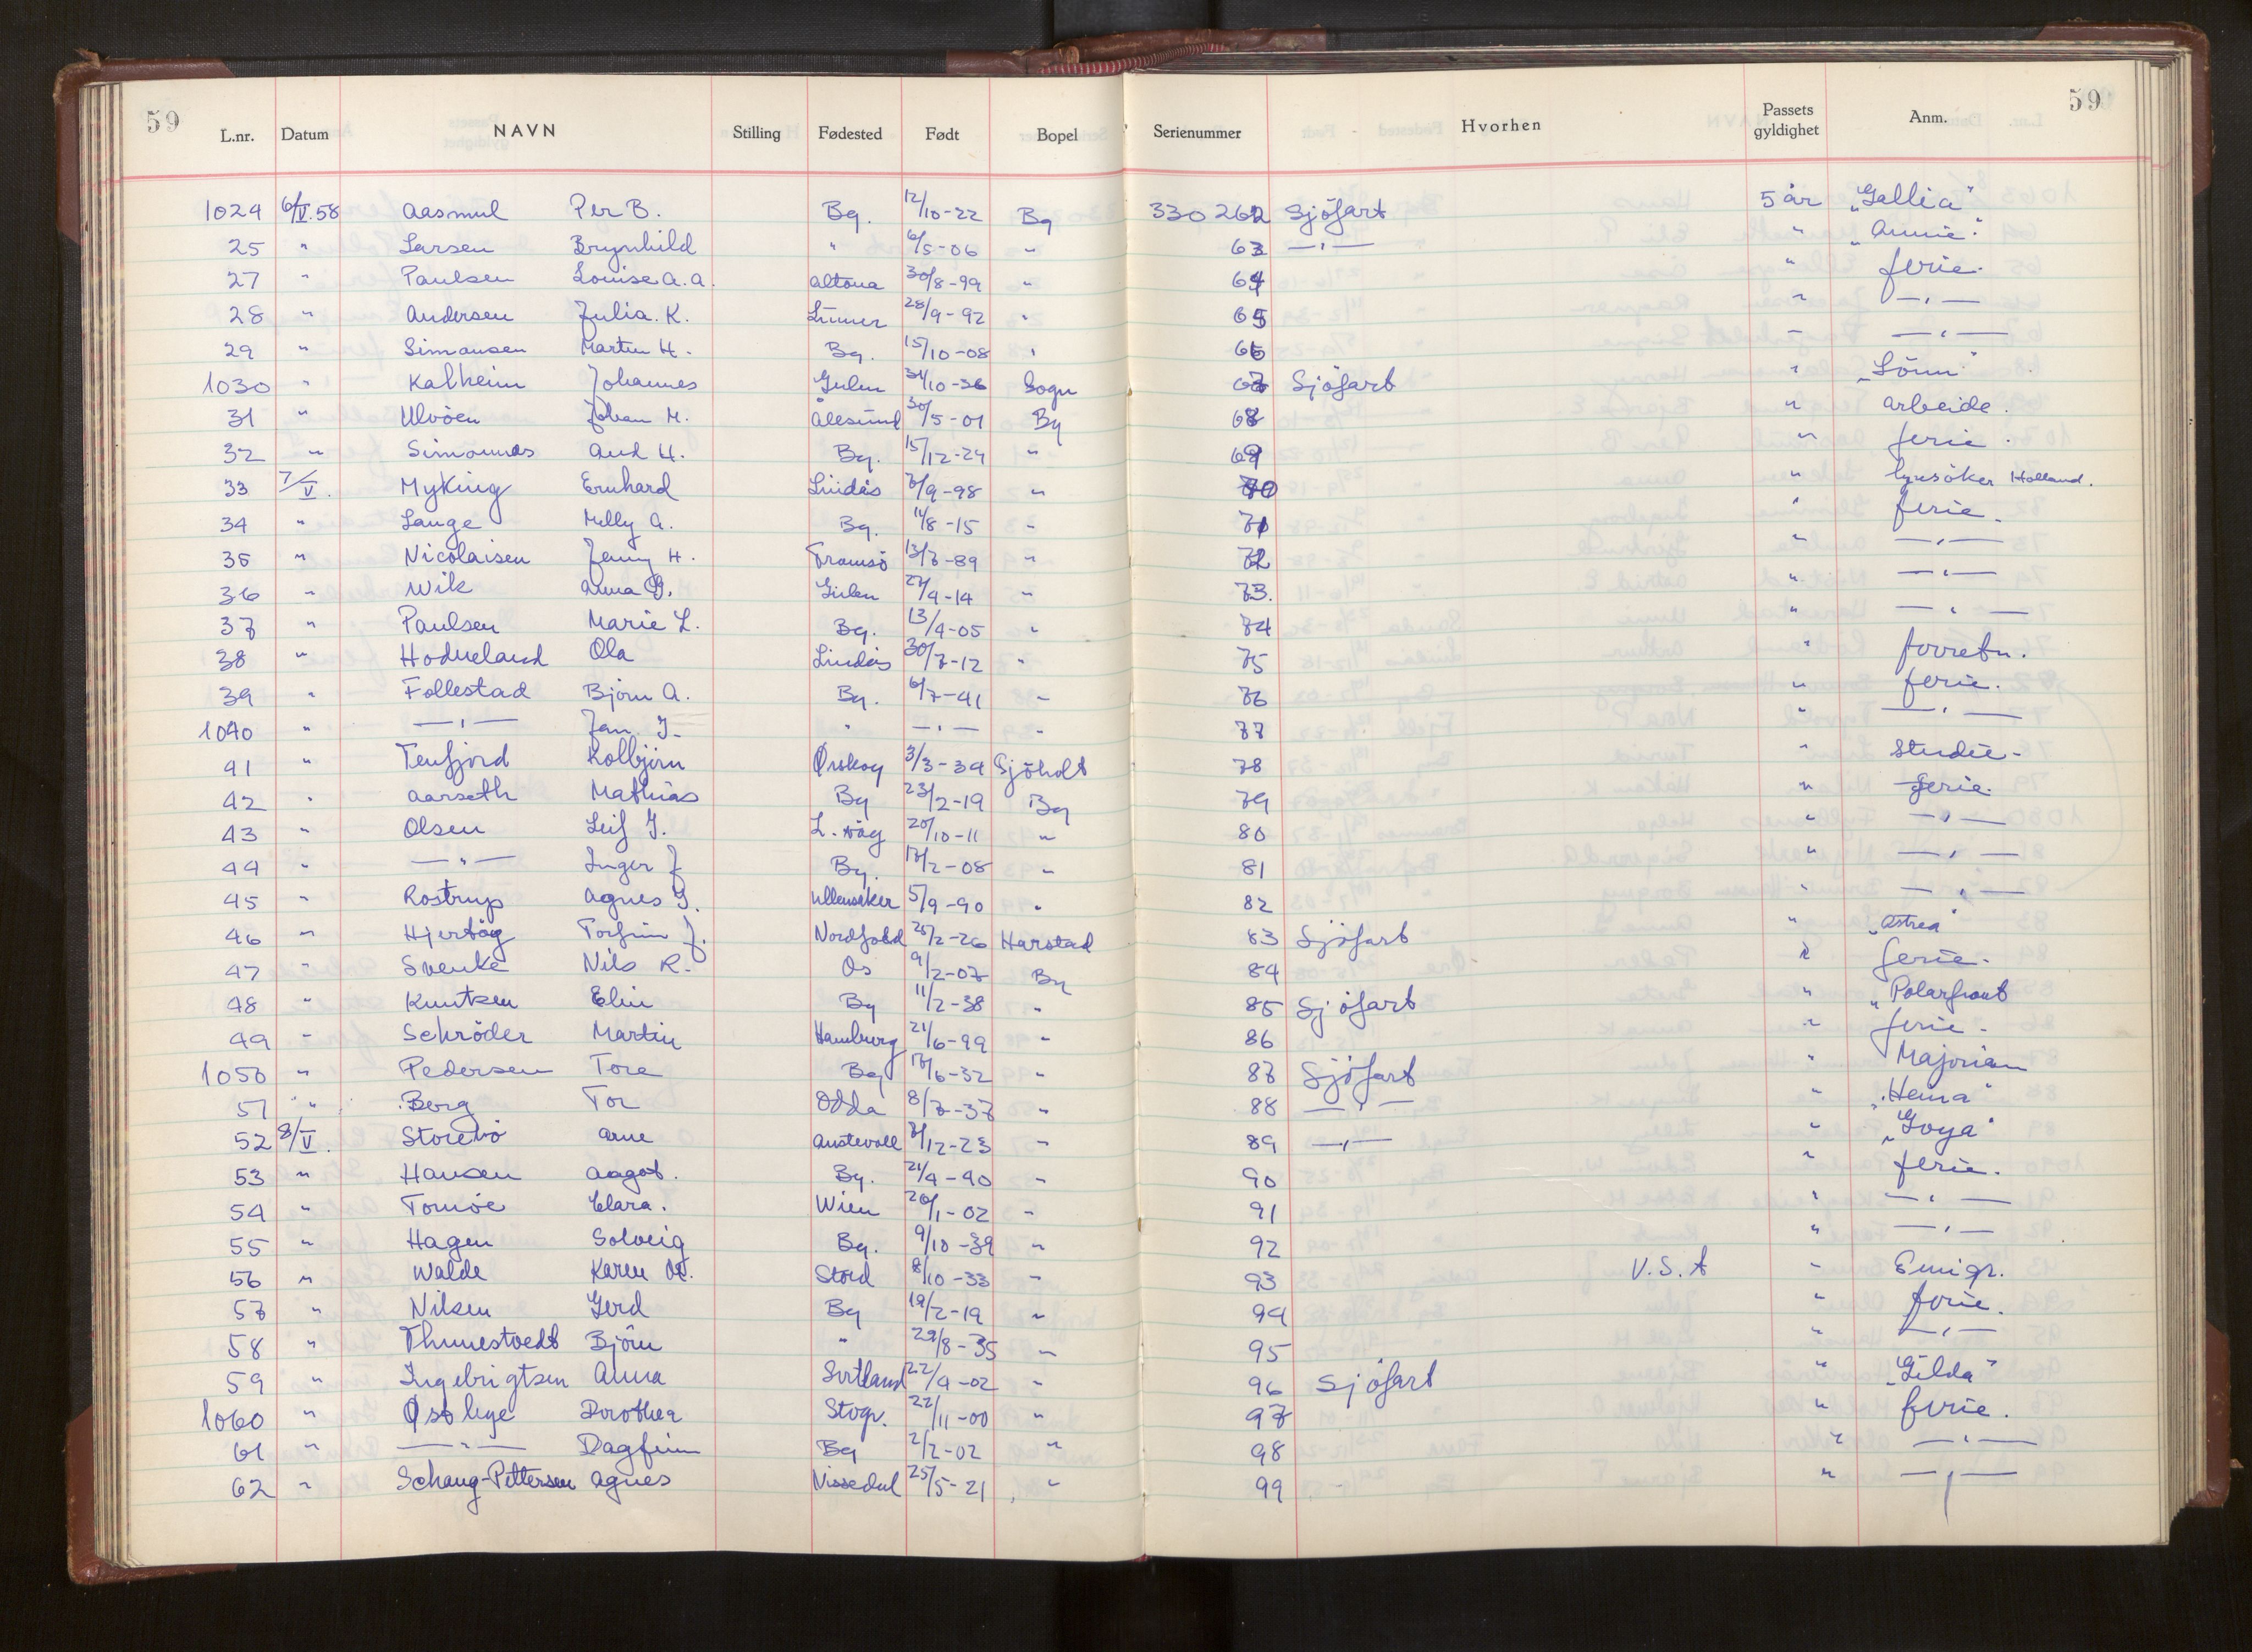 59 59
L.nr. Datum NAVN Stilling Fødested Født Bopel Serienummer Hvorhen Passets gyldighet Anm.
1024 6/V.58 Aasmul Per B. Bg. 12/10-22 Bg 330262 Sjöfart 5 år "Gallia"
25 " Larsen Brynhild " 6/5-06 " 63 —"— " "Annie"
27 " Paulsen Louise A.A. Altona 30/8-99 " 64 " ferie.
28 " Andersen Julia. K. Lunner 28/9-92 " 65 " —"—
29 " Simonsen Martin H. Bg. 15/10-08 " 66 " —"—
1030 " Kalheim Johannes Gulen 31/10-36 Sogn 67 Sjöfart " "Lönn"
31 " Ulvöen Johan M. Ålesund 30/5-01 Bg 68 " arbeide.
32 " Simonnæs Aud H. Bg. 15/12-24 " 69 " ferie.
33 7/V. Myking Ernhard Lindås 7/9-98 " 70 " lynsöker Holland.
34 " Lange Melly A. Bg. 11/8-15 " 71 " ferie.
35 " Nicolaisen Jenny H. Tromsö 13/7-89 " 72 " —"—
36 " Wik Anna G. Gulen 27/9-14 " 73. " —"—
37 " Paulsen Marie L. Bg. 13/4-05 " 74 " —"—
38 " Hodneland Ola Lindås 30/7-12 " 75 " forretn.
39 " Follestad Björn A. Bg. 6/7-41 " 76 " ferie.
1040 " —"— Jan J. " —"— " 77 " —"—
41 " Tenfjord Kolbjörn Ørskog 3/3-39 Sjöholt 78 " Studie-
42 " Aarseth Mathias Bg 23/2-19 Bg 79 " ferie.
43 " Olsen Leif J. L.våg 20/10-11 " 80 " —"—
44 " —"— Inger J Bg. 17/2-08 " 81 " —"—
45 " Rostrup Agnes J. Ullensaker 5/9-90 " 82 " —"—
46 " Hjertög Torfinn J. Nordfold 25/2-26 Harstad 83 Sjöfart " "Astrea"
47 " Svenke Nils R. Os 9/2-07 Bg 84 " ferie.
48 " Knutsen Elin Bg 11/2-38 " 85 Sjöfart " "Polarfront
49 " Schröder Martin Hamburg 21/6-99 " 86 " ferie.
1050 " Pedersen Tore Bg 17/6-32 " 87 Sjöfart " Majorian
51 " Berg Tor Odda 8/7-37 " 88 —"— " "Heina"
52 8/V. Storebö Arne Austevoll 7/12-23 " 89 —"— " "Goya"
53 " Hansen Aagot. Bg. 21/4-40 " 90 " ferie.
54 " Tomöe Clara. Wien 20/1-02 " 91 " —"—
55 " Hagen Solveig Bg. 9/10-39 " 92 " —"—
56 " Walde Karen Stord 8/10-33 " 93 U.S.A " Emigr.
57 " Nilsen Gerd Bg 19/2-19 " 94 " ferie.
58 " Thunestvedt Björn " 29/8-35 " 95 " —"—
59 " Ingebrigtsen Anna 22/4-02 " 96 Sjöfart " "Gilda"
1060 " Østhge Dorothea Stvgr. 22/11-00 " 97 " ferie.
61 " —"— Dagfinn Bg 2/2-02 " 98 " —"—
62 " Schaug-Pettersen Agnes Nissedal 25/5-21 " 99 " —"—